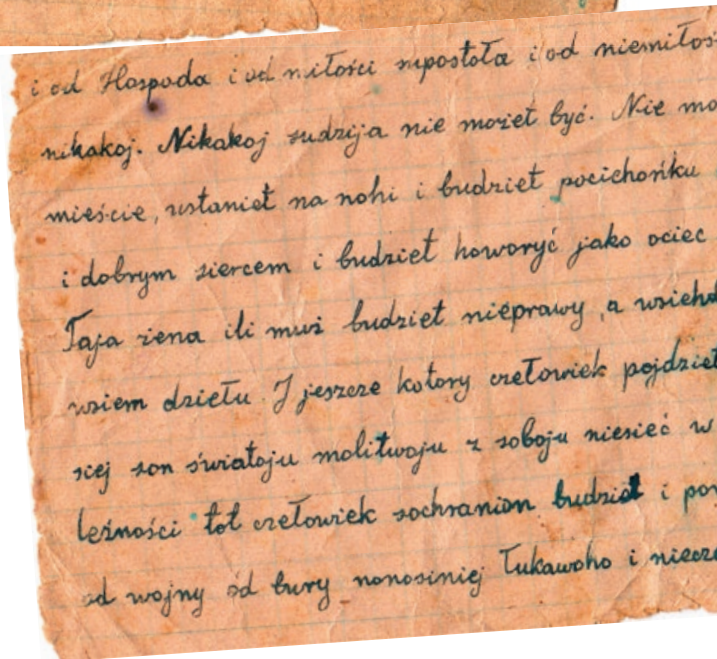 i od Hospoda i od miłości supostoła i od niemiłoś
nikakoj. Nikakoj sudzija nie możet być. Nie mo
mieście, ustaniet na nohi i budziet pocichońku
i dobrym siercem i budziet howoryć jako ociec
Taja żena ili muż budziet nieprawy, a wsieh
wsiem dziełu. I jeszcze kotory czełowiek pojdziet
siej son światoju molitwoju z soboju niesieć w
leżności tot czełowiek sochranion budziet i po
od wojny od bury Łukawoho i niecz